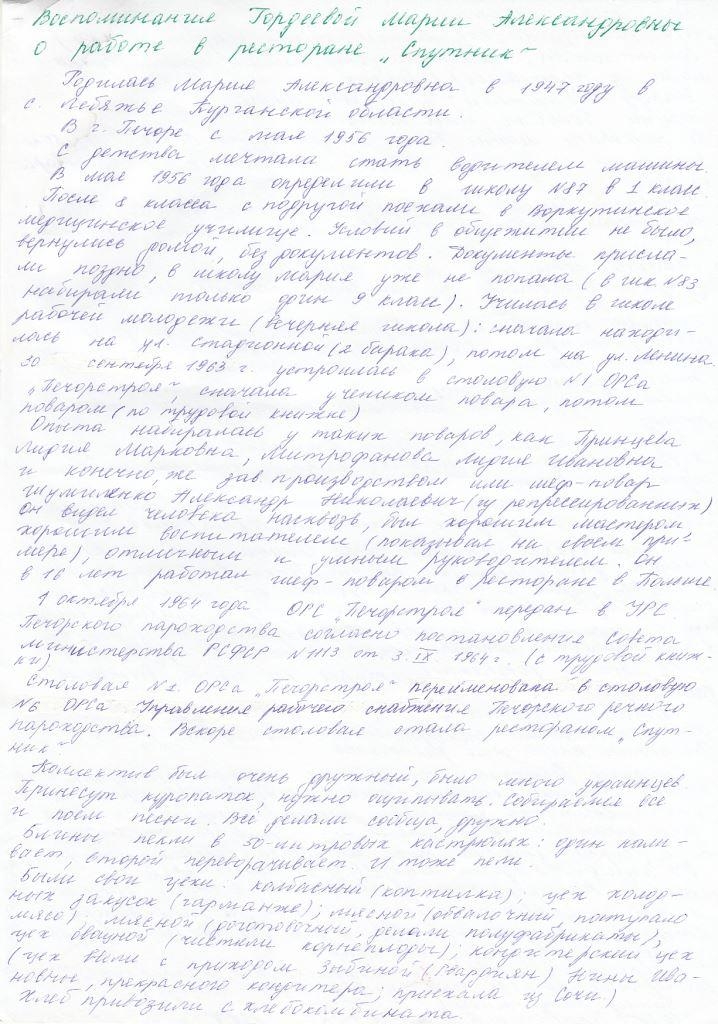 Воспоминание Гордеевой Марии Александровны
о работе в ресторане „Спутник"
Родилась Мария Александровна в 1947 году в
с. Лебяжье Курганской области.
В г. Печоре с мая 1956 года.
С детства мечтала стать водителем машины.
В мае 1956 года определили в школу №87 в 1 класс
После 8 класса с подругой поехали в Воркутинское
медицинское училище. Условий в общежитии не было,
вернулись домой, без документов. Документы присла-
ли поздно, в школу Мария уже не попала (в шк. №83
набирали только один 9 класс). Училась в школе
рабочей молодежи (вечерняя школа): сначала находи-
лась на ул. Стадионной (2 барака), потом на ул. Ленина.
30 сентября 1963 г. устроилась в столовую №1 ОРСа
„Печорстроя", сначала учеником повара, потом
поваром (по трудовой книжке)
Опыта набиралась у таких поваров, как Принцева
Лидия Марковна, Митрофанова Лидия Ивановна
и конечно, же зав. производством или шеф-повар
Шумиленко Александр Николаевич (из репрессированных)
Он видел человека насквозь, был хорошим мастером
хорошим воспитателем (показывал на своем при-
мере), отличным и умным руководителем. Он
в 16 лет работал шеф-поваром в ресторане в Польше.
1 октября 1964 года ОРС „Печорстроя" передан в УРС
Печорского пароходства согласно постановление Совета
министерства РСФСР №1113 от 3.IX.1964 г. (с трудовой книж-
ки)
Столовая №1 ОРСа „Печорстроя" переименована в столовую
№6 ОРСа Управления рабочего снабжения Печорского речного
пароходства. Вскоре столовая стала рестораном „Спут-
ник"
Коллектив был очень дружный, было много украинцев.
Принесут куропаток, нужно ощипывать. Собираемся все
и поем песни. Всё делали сообща, дружно.
Блины пекли в 50-литровых кастрюлях: один нали-
вает, второй переворачивает. И тоже пели.
Были свои цехи: колбасный (коптилка); цех холод-
ных закусок (гарманже); мясной (обвалочный, поступало
мясо); мясной (заготовочный, делали полуфабрикаты),
цех овощной (чистили корнеплоды); кондитерский цех
(цех ввели с приходом Зыбиной (Гвардиян) Нины Ива-
новны, прекрасного кондитера; приехала из Сочи.)
Хлеб привозили с хлебокомбината.